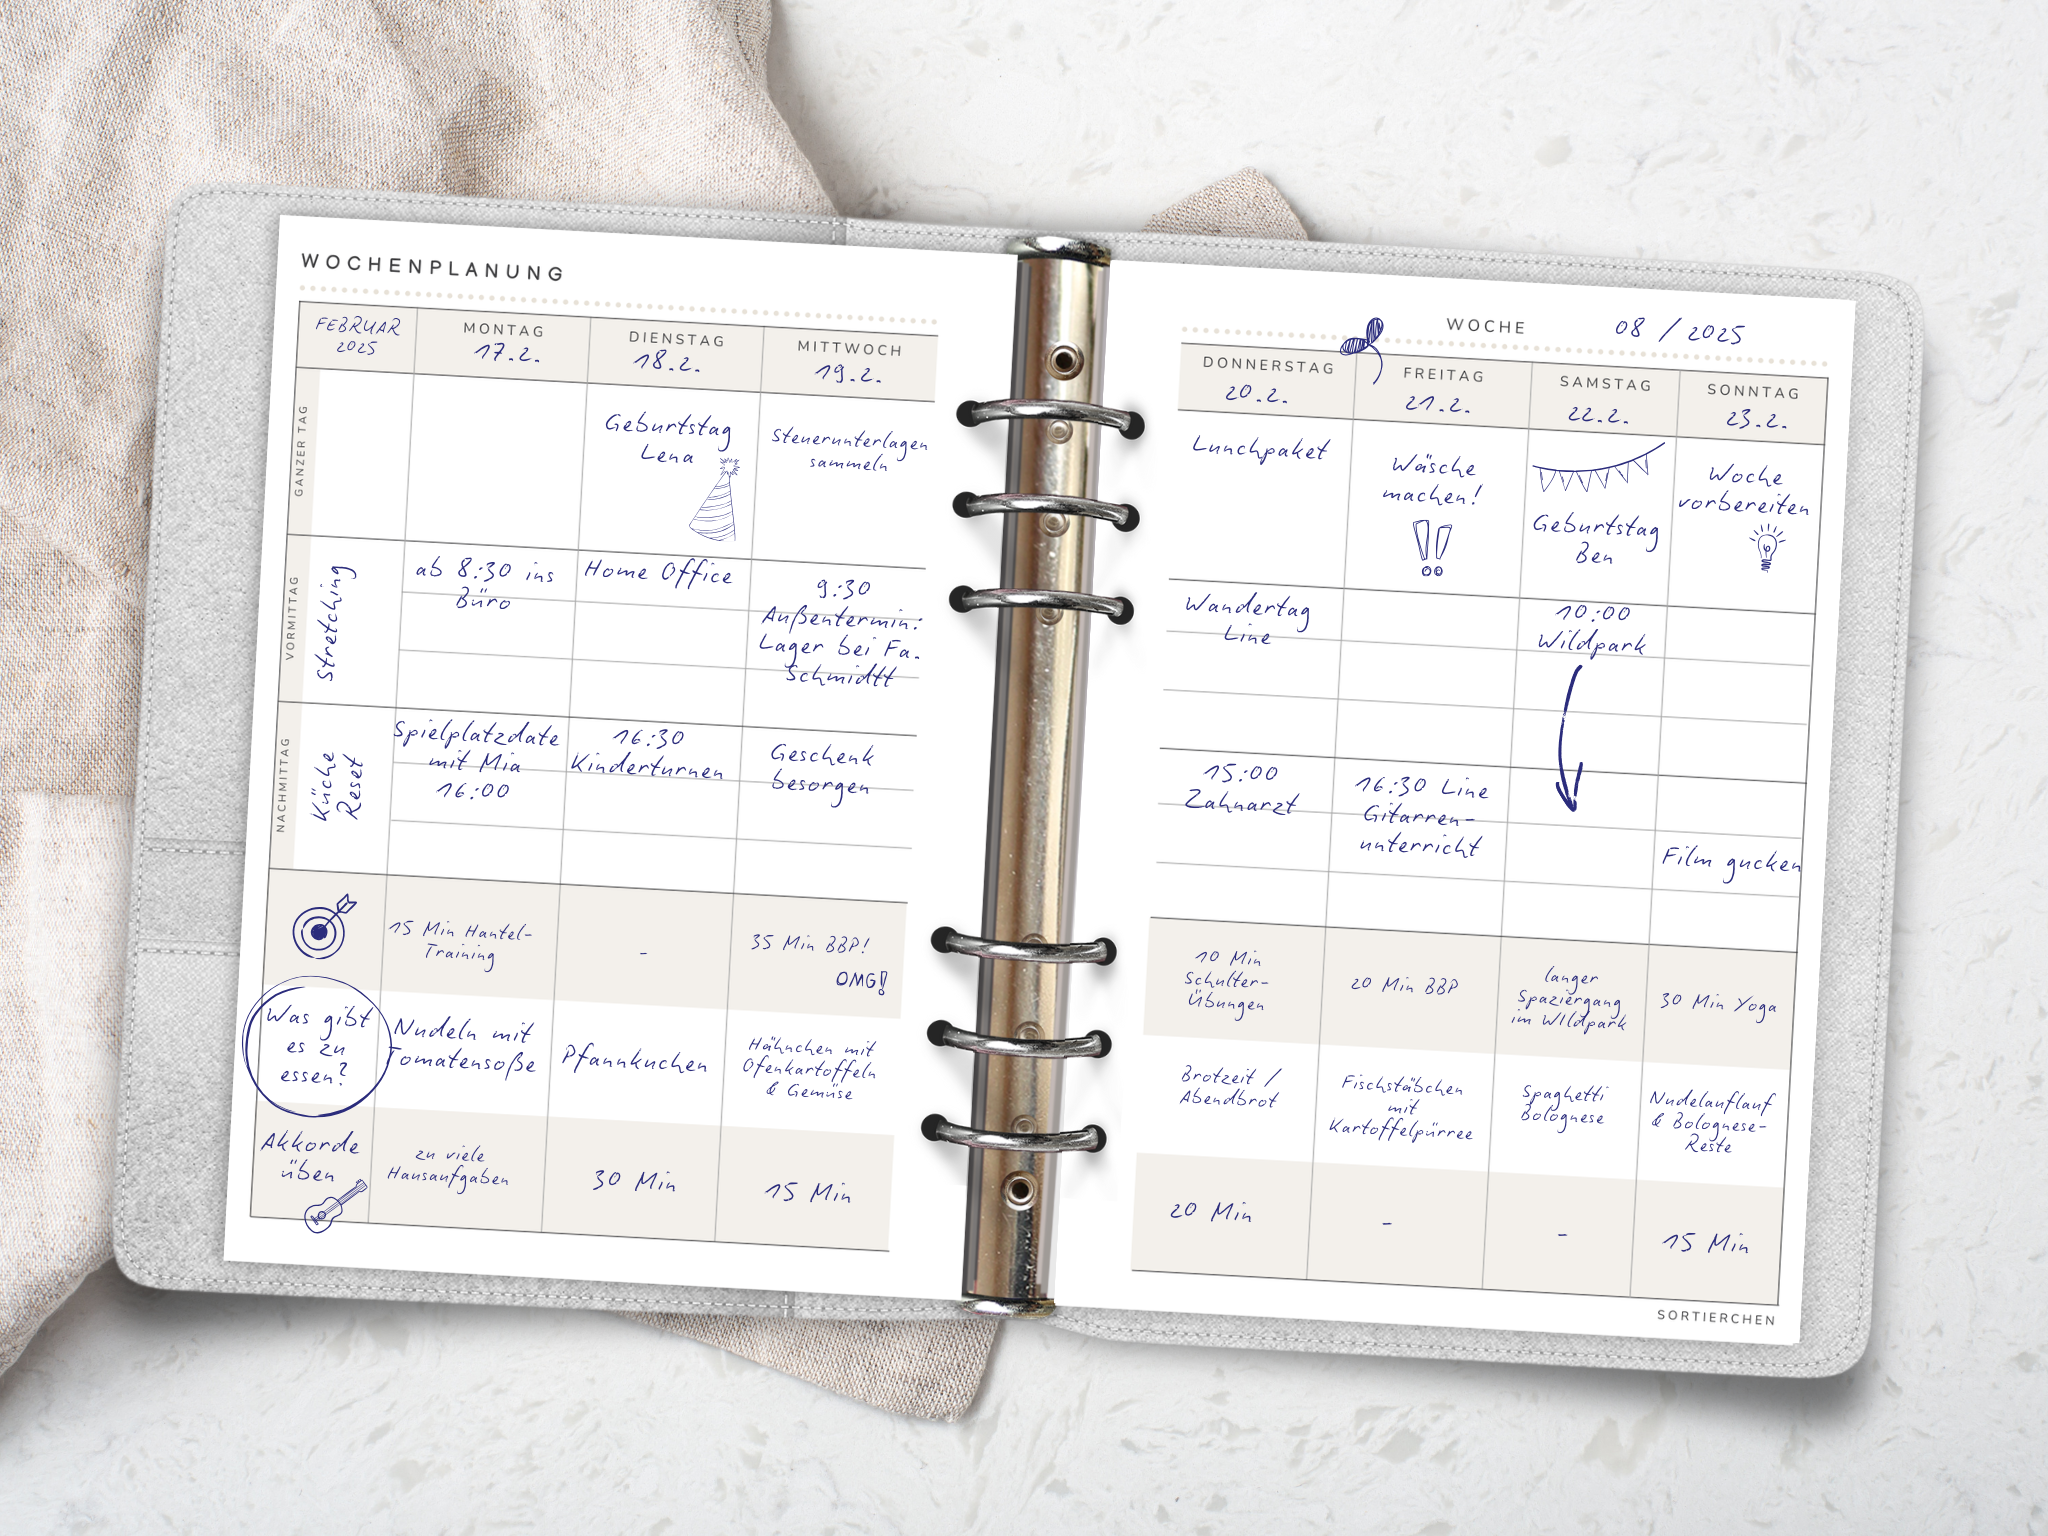 WOCHENPLANUNG
FEBRUAR
2025
MONTAG
17.2.
DIENSTAG
18.2.
MITTWOCH
19.2.
GANZER TAG
Geburtstag
Lena
Steuerunterlagen
sammeln
VORMITTAG
Stretching
ab 8:30 ins
Büro
Home Office
9:30
Außentermin:
Lager bei Fa.
Schmidtt
NACHMITTAG
Küche
Reset
Spielplatzdate
mit Mia
16:00
16:30
Kinderturnen
Geschenk
besorgen
15 Min Hantel-
Training
-
35 Min BBP!
OMG!
Was gibt
es zu
essen?
Nudeln mit
Tomatensoße
Pfannkuchen
Hähnchen mit
Ofenkartoffeln
& Gemüse
Akkorde
üben
zu viele
Hausaufgaben
30 Min
15 Min
WOCHE 08 / 2025
DONNERSTAG
20.2.
FREITAG
21.2.
SAMSTAG
22.2.
SONNTAG
23.2.
Lunchpaket
Wäsche
machen!
!!
Geburtstag
Ben
Woche
vorbereiten
Wandertag
Line
10:00
Wildpark
15:00
Zahnarzt
16:30 Line
Gitarren-
unterricht
Film gucken
10 Min
Schulter-
Übungen
20 Min BBP
langer
Spaziergang
im WIldpark
30 Min Yoga
Brotzeit /
Abendbrot
Fischstäbchen
mit
Kartoffelpürree
Spaghetti
Bolognese
Nudelauflauf
& Bolognese-
Reste
20 Min
-
-
15 Min
SORTIERCHEN